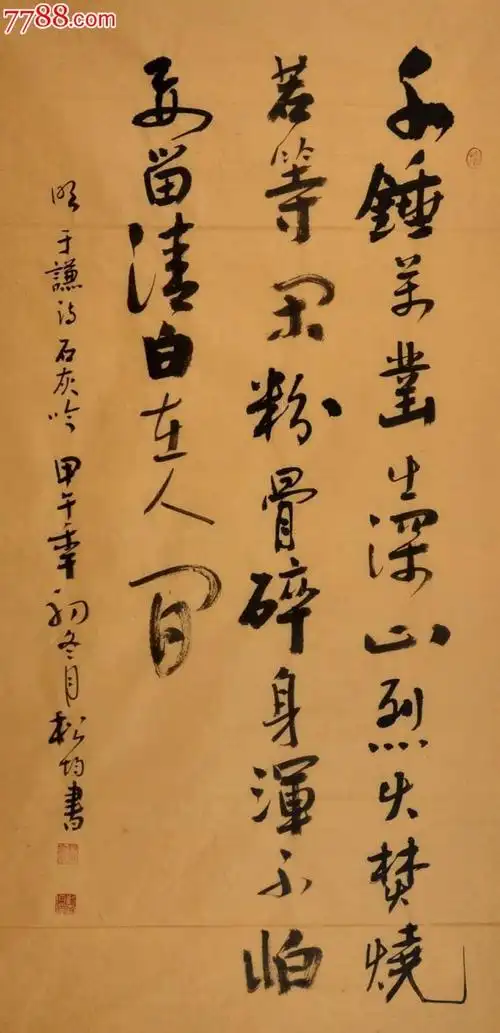 7788.com
千錘萬凿出深山烈火焚燒
若等閑粉骨碎身渾不怕
要留清白在人間
明于謙詩石灰吟甲午年初冬月松均書